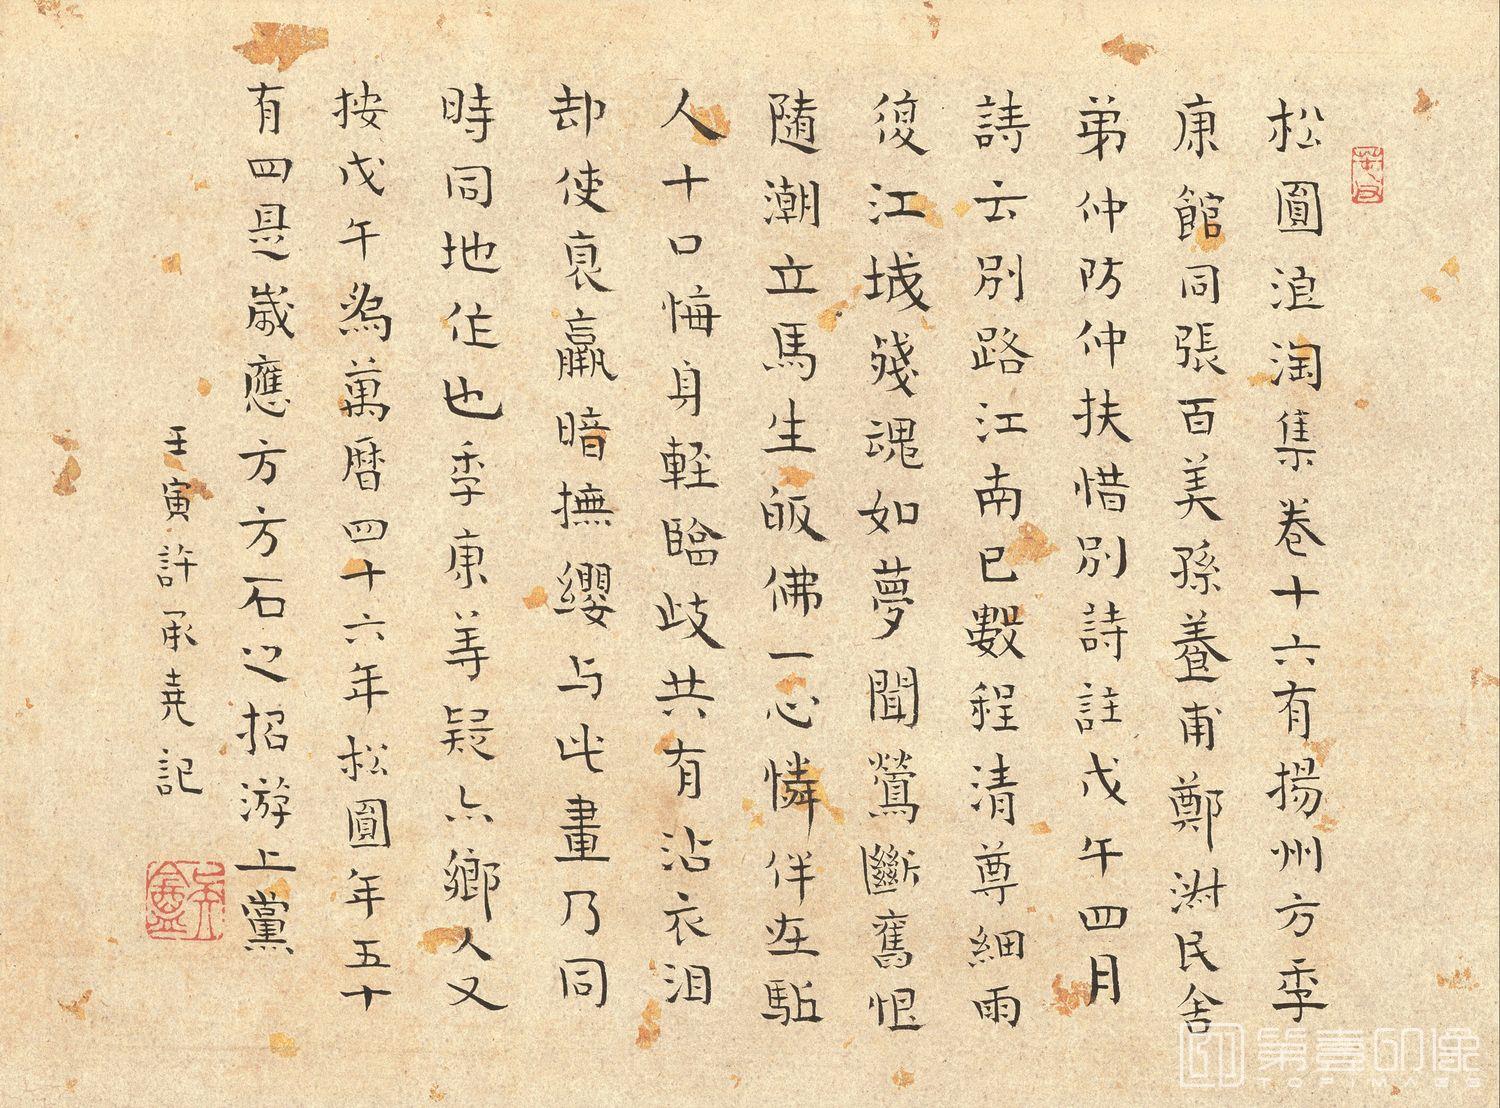 松圓浪淘集卷十六有揚州方季
康館同張百美孫養甫鄭澍民舍
弟仲防仲扶惜別詩註戊午四月
詩云別路江南已數程清尊細雨
復江城殘魂如夢聞鶯斷舊恨
隨潮立馬生皈佛一心憐伴在駈
人十口悔身輕臨歧共有沾衣泪
却使衰羸暗撫纓与此畫乃同
時同地作也季康等疑亦鄉人又
按戊午為萬曆四十六年松圓年五十
有四是歲應方方石之招游上黨
壬寅許承堯記
第壹印像
TOPIMAGE